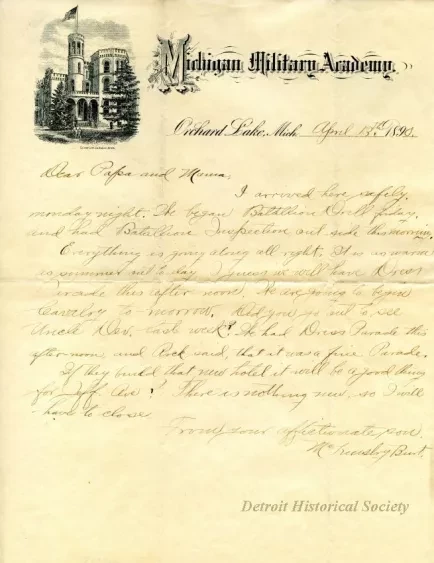 Michigan Military Academy.
Orchard Lake, Mich. April 13th 1890.
Dear Papa and Mama,
I arrived here safely
monday night. We began Batallion Drill friday.
and had Batallion Inspection out side this morning.
Everything is going along all right. It is as warm
as summer out to day. I guess we will have Dress
Parade this after noon. We are going to begin
Cavalry to-morrow. Did you go out to see
Uncle Dev. last week? We had Dress Parade this
after noon and Rock said, that it was a fine Parade.
If they build that new hotel it will be a good thing
for Jeff. Ave! There is nothing new, so I will
have to close.
From your affectionate son,
Burt.
Detroit Historical Society